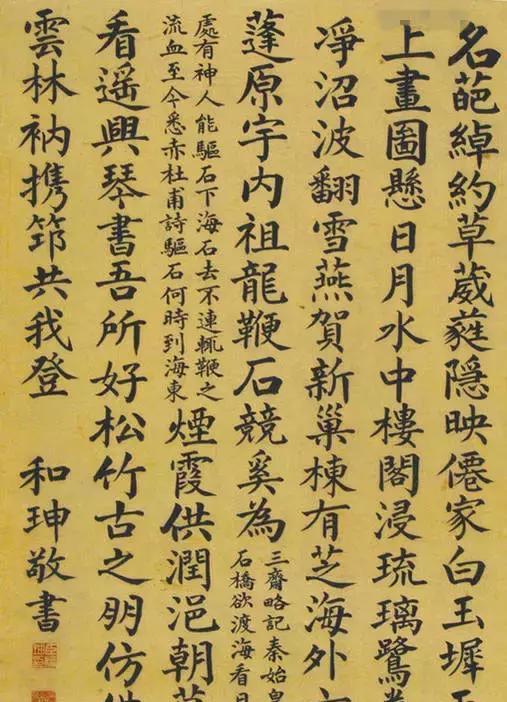 名葩綽約草葳蕤隱映僊家白玉墀
上畫圖懸日月水中樓閣浸琉璃鷺
凈沼波翻雪燕賀新巢棟有芝海外
蓬原宇内祖龍鞭石競奚為
三齋略記秦始皇
石橋欲渡海看日
處有神人能驅石下海石去不速輒鞭之
流血至今悉赤杜甫詩驅石何時到海東
煙霞供潤浥朝
看遥興琴書吾所好松竹古之朋仿
雲林衲携筇共我登 和珅敬書